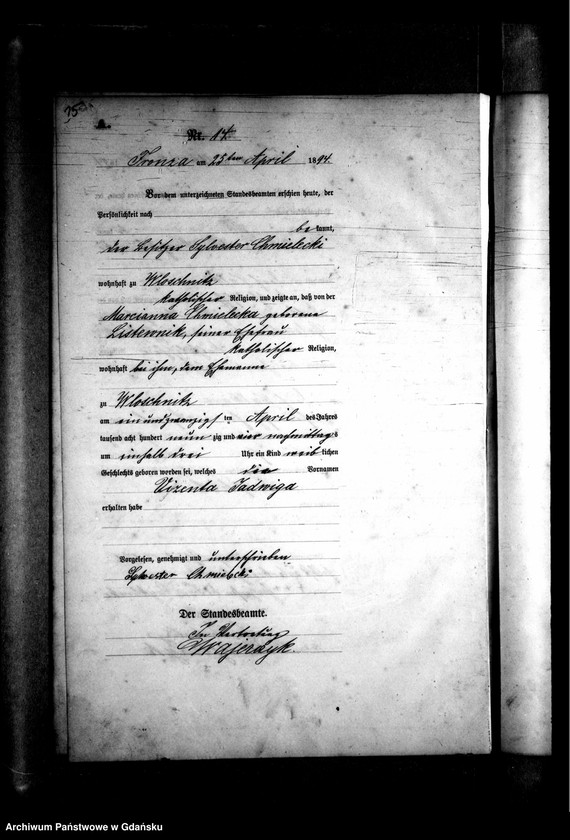 A.
Nr. 14
Bronsa am 25ten April 1894.
Vor dem unterzeichneten Standesbeamten erschien heute, der
Persönlichkeit nach
be kannt,
der Besitzer Sylvester Chmielecki
wohnhaft zu Wloschnitz
katholischer Religion, und zeigte an, daß von der
Marcianna Chmielecka geborene
seiner Ehefrau
katholischer Religion,
wohnhaft bei ihm, dem Ehemanne
zu Wloschnitz
am ein und zwanzigsten April des Jahres
tausend acht hundert neun zig und vier nachmittags
um einhalb drei Uhr ein Kind weib lichen
Geschlechts geboren worden sei, welches die Vornamen
Vizenta Jadwiga
erhalten habe
Vorgelesen, genehmigt und unterschrieben
Sylvester Chmielecki
Der Standesbeamte.
In Vertretung
Archiwum Państwowe w Gdańsku